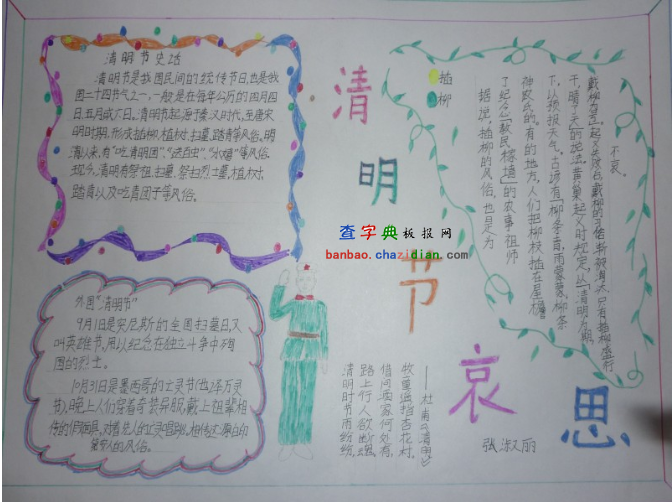 清明节史话
清明节是我国民间的传统节日,也是我
国二十四节气之一,一般是在每年公历的四月四
日、五月或六日。清明节起源于秦汉时代,至唐宋
明时期,形成插柳,植树,扫墓,踏青等风俗,明
清以来,有"吃清明团"
等风俗
现今,清明有祭祖,扫墓,祭扫烈士墓,植树,
踏青以及吃青团子等风俗。
外国"清明节"
9月1日是突尼斯的全国扫墓日,又
叫英雄节,用以纪念在独立斗争中殉
国的烈士。
10月31日是墨西哥的亡灵节(也
节),晚上人们穿着奇装异服,戴上祖辈相
的风俗。
清
明
节
哀
思
插
柳
据说,插柳的风俗,也是为
了纪念"教民稼墙"的农事祖师
神农氏的。有的地方,人们把柳枝插在屋檐
下,以预报天气,古谚有"柳条青,雨蒙蒙;柳条
干,晴了天"的说法。黄巢起义时规定,以"清明为期,
不衰。
——杜甫《清明》
牧童遥指杏花村。
借问酒家何处有,
路上行人欲断魂。
清明时节雨纷纷,
张淑丽
查字典板报网
banbao.chazidian.com